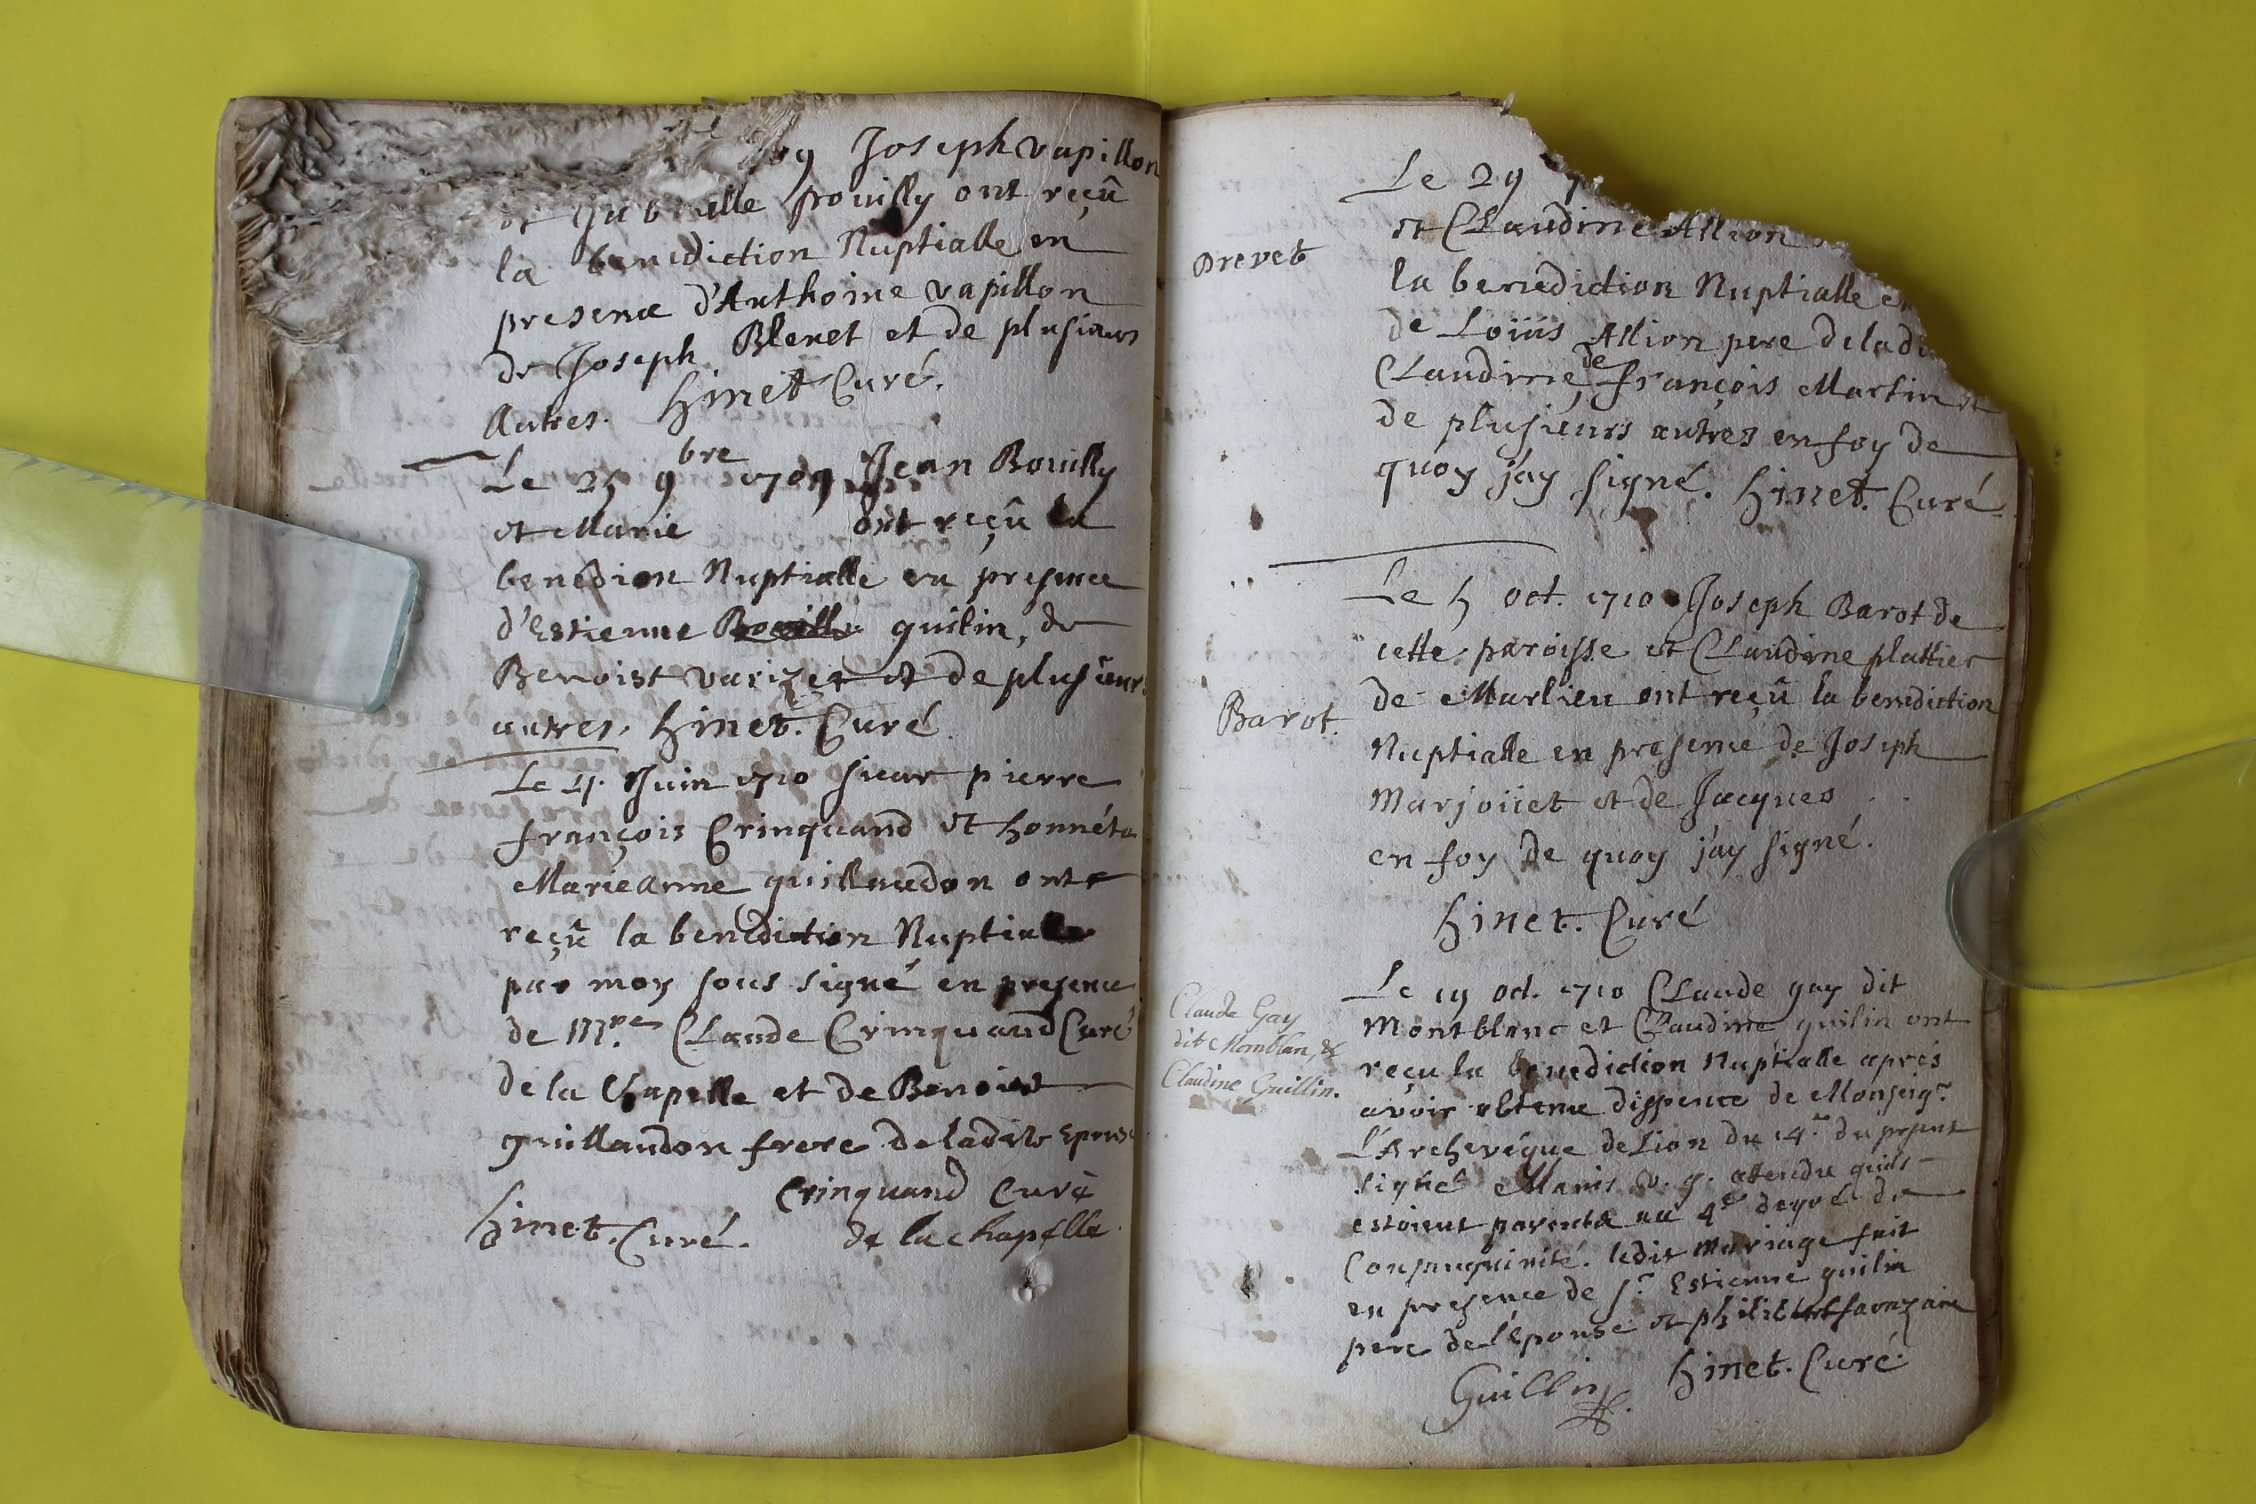 09 Joseph vapillon
et frouilly ont reçû
la benediction Nuptialle en
presence d'Anthoine vapillon
de Joseph Blenet et de plusieurs
Autres. hinet Curé.
Le 25 9bre 1709 Jean Bouilly
et Marie ont reçû la
benedion Nuptialle en presence
d'Estienne guilin, de
Benoist varizet et de plusieurs
autres. hinet. Curé
Le Juin 1710 sieur pierre
françois Crinquand et honnéte
Marieanne guillaudon ont
reçû la benediction Nuptialle
par moy sous signé en presence
de Mre Claude Crinquand Curé
de la Chapelle et de Benoist
guillaudon frere deladite Epouse
Crinquand Curé
hinet. Curé. de la chapelle.
Le 29
et Claudine Allion
Drevet
la benediction Nuptialle en
de Loüis Allion pere deladi
Claudine, de françois Martin et
de plusieurs autres en foy de
quoy j'ay signé. hinet. Curé
Le 5 oct. 1710 Joseph Barot de
cette paroisse et Claudine plattier
de Marlieu ont reçû la benediction
Barot.
Nuptialle en presence de Joseph
Marjoüet et de Jacques
en foy de quoy j'ay signé.
hinet. Curé
Le 19 oct. 1710 Claude gay dit
Montblanc et Claudine guilin ont
reçu la benediction Nuptialle aprés
avoir obtenu dispence de Monseigr
l'Archevéque de Lion du 14e du pnt
signé Manis v. g. attendu quils
estoient parents au 4e degré de
Consanguinité. ledit Mariage fait
en presence de sr Estienne guilin
pere de l'épouse et philibert
Guillin. hinet. Curé.
Claude Gay
dit Momblan, &
Claudine Guillin.